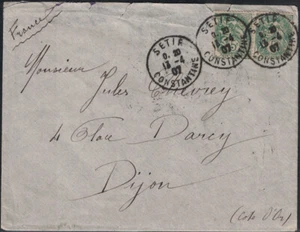 (France)
SETIF
CONSTANTINE
SETIF
CONSTANTINE
CONSTANTINE
Monsieur
Jules
4 Place Darcy
Dijon
(Côte d'Or)